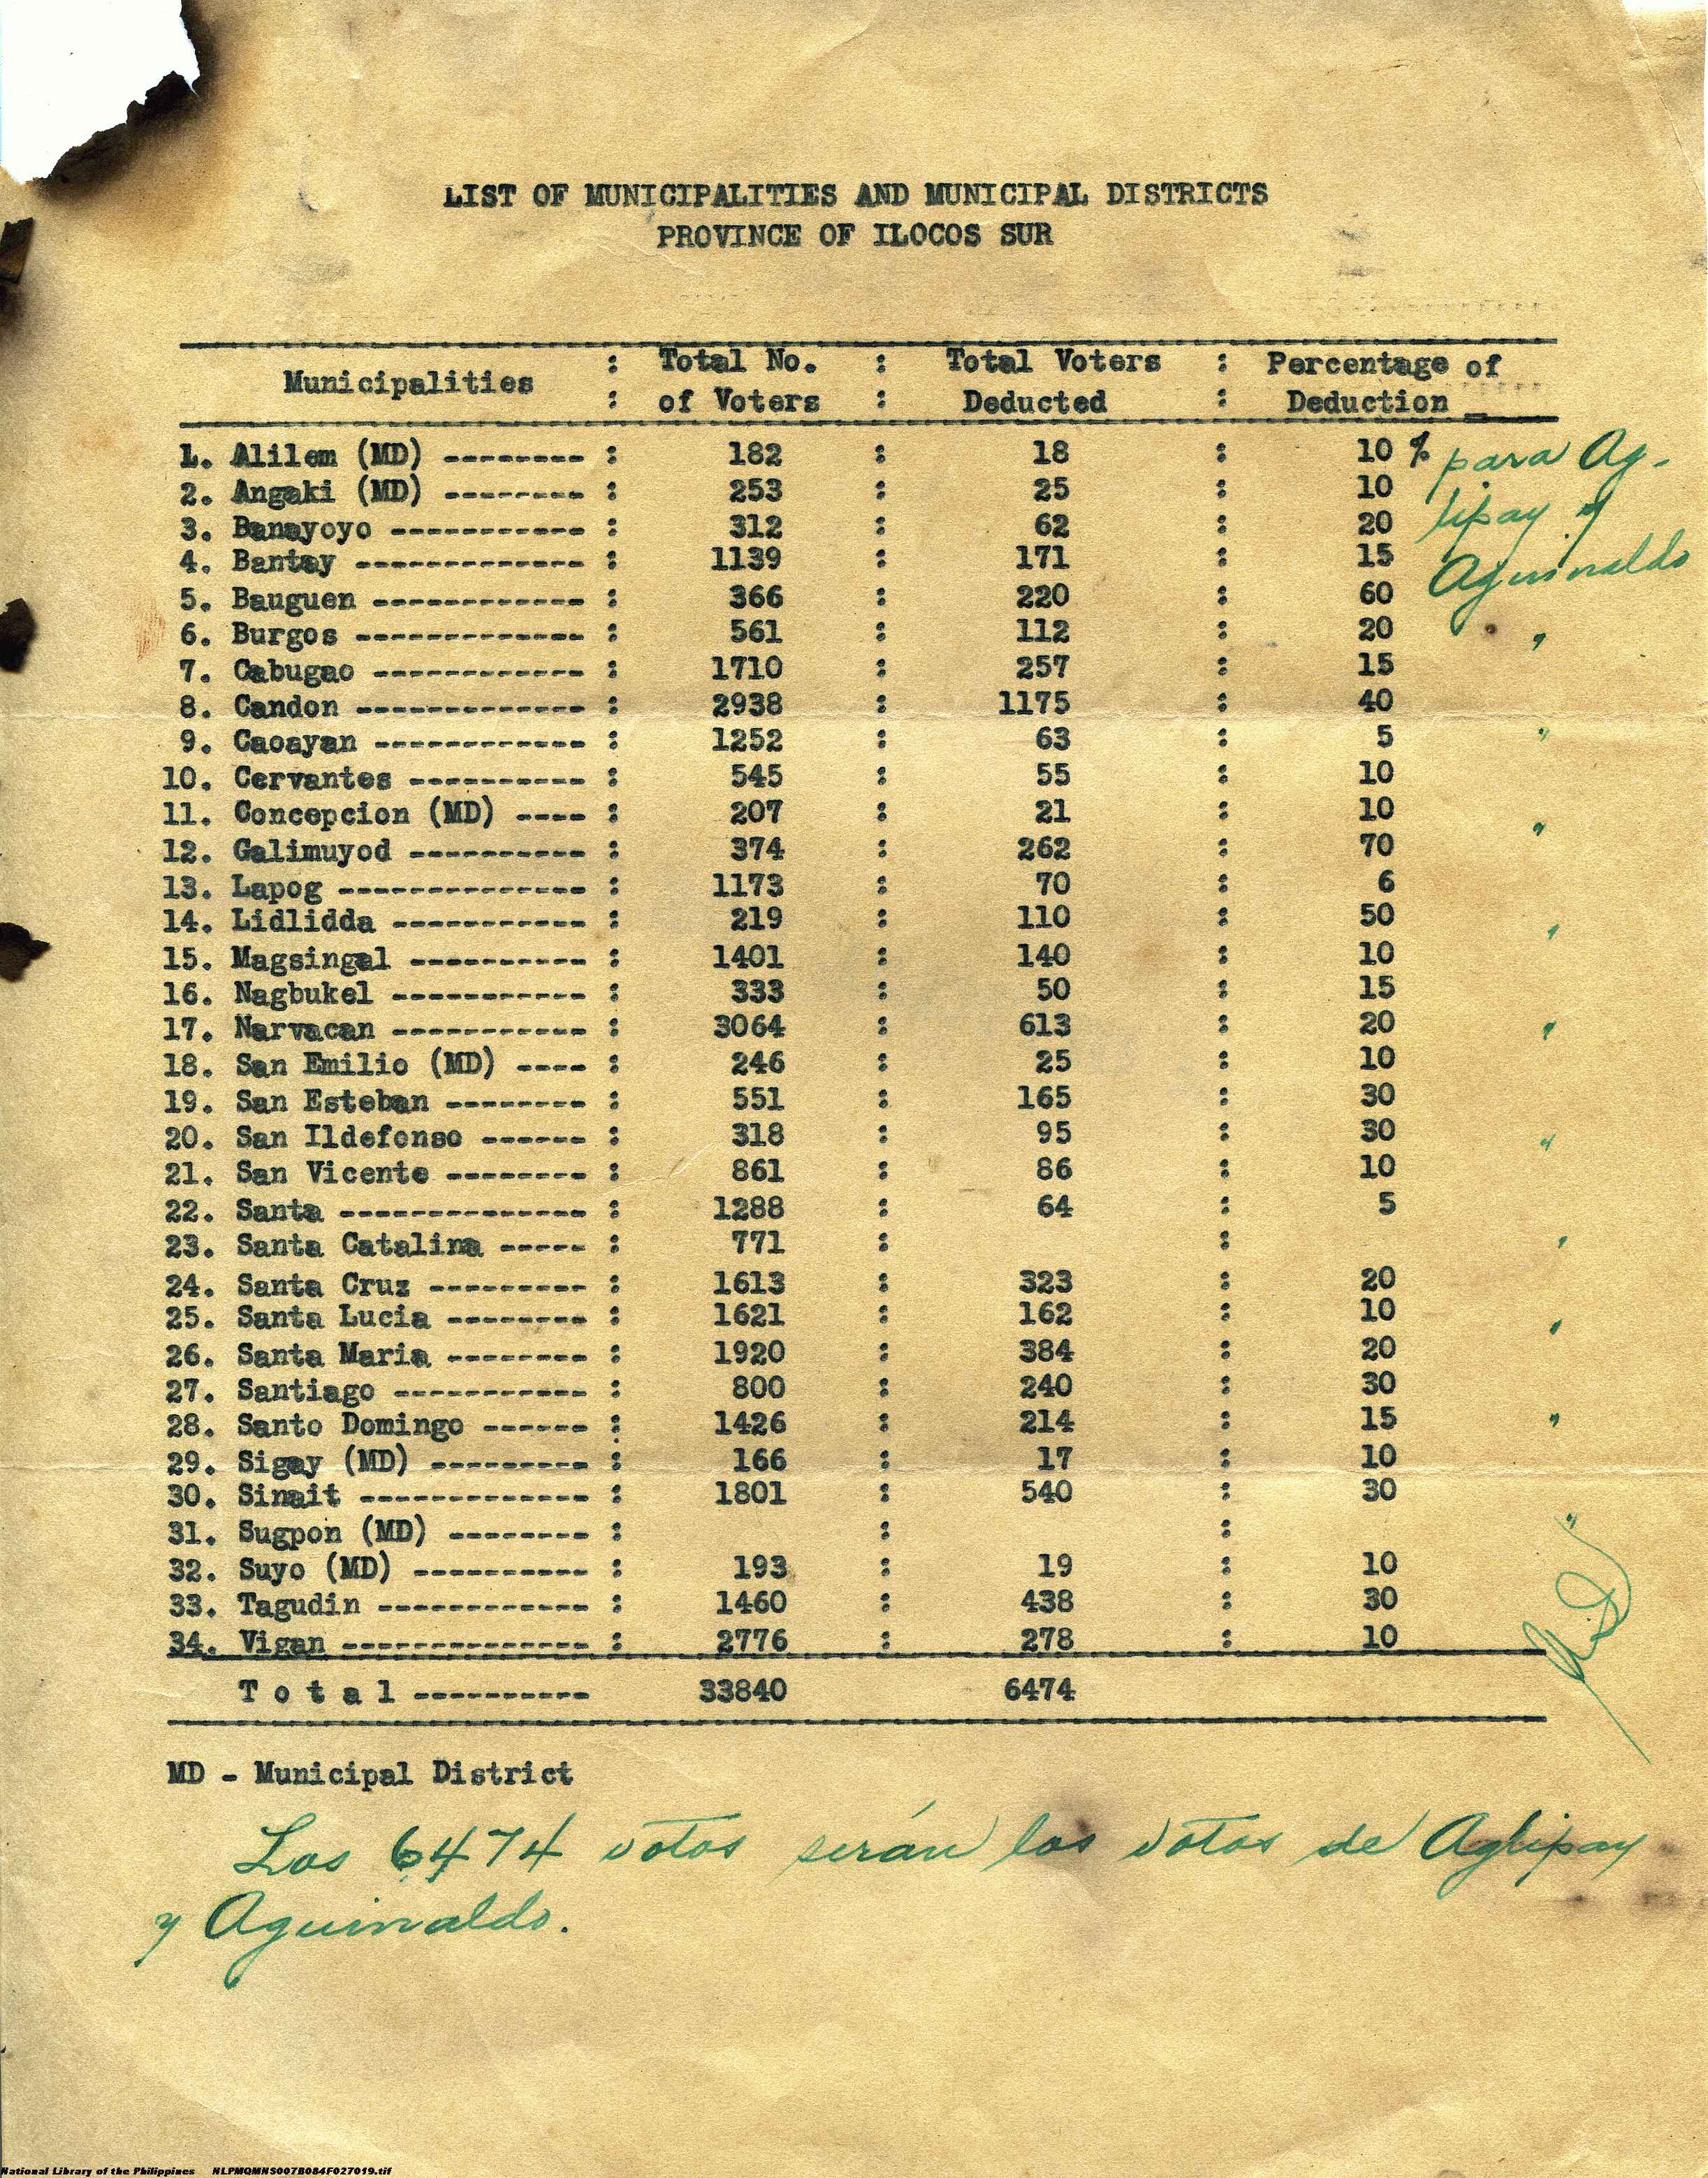 LIST OF MUNICIPALITIES AND MUNICIPAL DISTRICTS
PROVINCE OF ILOCOS SUR
Municipalities : Total No. of Voters : Total Voters Deducted : Percentage of Deduction
1. Alilem (MD) -------- : 182 : 18 : 10 % para Ag-
2. Angaki (MD) -------- : 253 : 25 : 10
3. Banayoyo ----------- : 312 : 62 : 20 lipay y
4. Bantay ------------- : 1139 : 171 : 15
5. Bauguen ------------ : 366 : 220 : 60 Aguinaldo
6. Burgos ------------- : 561 : 112 : 20 "
7. Cabugao ------------ : 1710 : 257 : 15
8. Candon ------------- : 2938 : 1175 : 40
9. Caoayan ------------ : 1252 : 63 : 5 "
10. Cervantes ---------- : 545 : 55 : 10
11. Concepcion (MD) ---- : 207 : 21 : 10 "
12. Galimuyod ---------- : 374 : 262 : 70
13. Lapog -------------- : 1173 : 70 : 6
14. Lidlidda ----------- : 219 : 110 : 50 "
15. Magsingal ---------- : 1401 : 140 : 10
16. Nagbukel ----------- : 333 : 50 : 15
17. Narvacan ----------- : 3064 : 613 : 20 "
18. San Emilio (MD) ---- : 246 : 25 : 10
19. San Esteban -------- : 551 : 165 : 30
20. San Ildefonso ------ : 318 : 95 : 30 "
21. San Vicente -------- : 861 : 86 : 10
22. Santa -------------- : 1288 : 64 : 5
23. Santa Catalina ----- : 771 : : "
24. Santa Cruz --------- : 1613 : 323 : 20
25. Santa Lucia -------- : 1621 : 162 : 10 "
26. Santa Maria -------- : 1920 : 384 : 20
27. Santiago ----------- : 800 : 240 : 30
28. Santo Domingo ------ : 1426 : 214 : 15 "
29. Sigay (MD) --------- : 166 : 17 : 10
30. Sinait ------------- : 1801 : 540 : 30
31. Sugpon (MD) -------- : : : "
32. Suyo (MD) ---------- : 193 : 19 : 10
33. Tagudin ------------ : 1460 : 438 : 30
34. Vigan -------------- : 2776 : 278 : 10
T o t a l ---------- 33840 6474
MD - Municipal District
Los 6474 votos serán los votos de Aglipay
y Aguinaldo.
National Library of the Philippines NLPMQMNS007B084F027019.tif